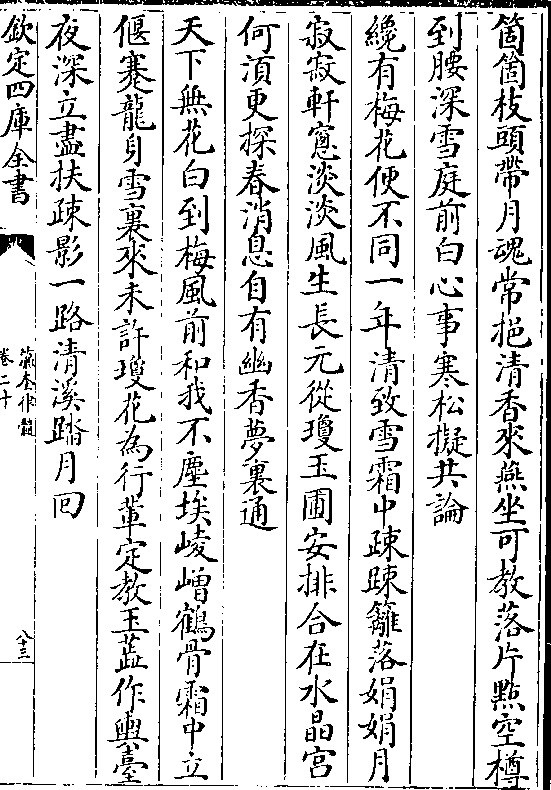 箇箇枝頭帶月魂常挹清香來燕坐可教落片㸃空樽
到腰深雪庭前白心事寒松擬共論
纔有梅花便不同一年清致雪霜中疎疎籬落娟娟月
寂寂軒窻淡淡風生長元從瓊玉圃安排合在水晶宮
何須更探春消息自有幽香夢裏通
天下無花白到梅風前和我不塵埃崚嶒鶴骨霜中立
偃蹇龍身雪裏來未許瓊花為行輩定教玉蘂作輿臺
夜深立盡扶疎影一路清溪踏月回
欽定四庫全書
瀛奎律髓
卷二十
八十三